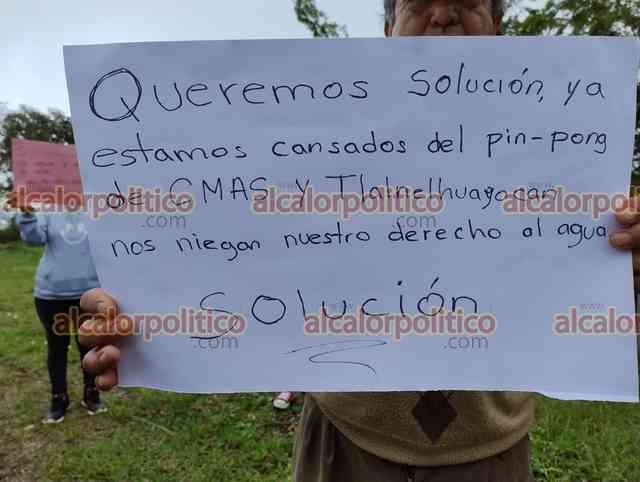 Queremos Solución, ya
estamos cansados del pin-pong
de CMAS y Tlalnelhuayocan
nos niegan nuestro derecho al agua
Solución
www.
alcalorpolitico
.com
alcalorpolitico
.com
alcalorpolitico
alcalorpolitico
.com
www.
alcalorpolitico
.com
www.
alcalor